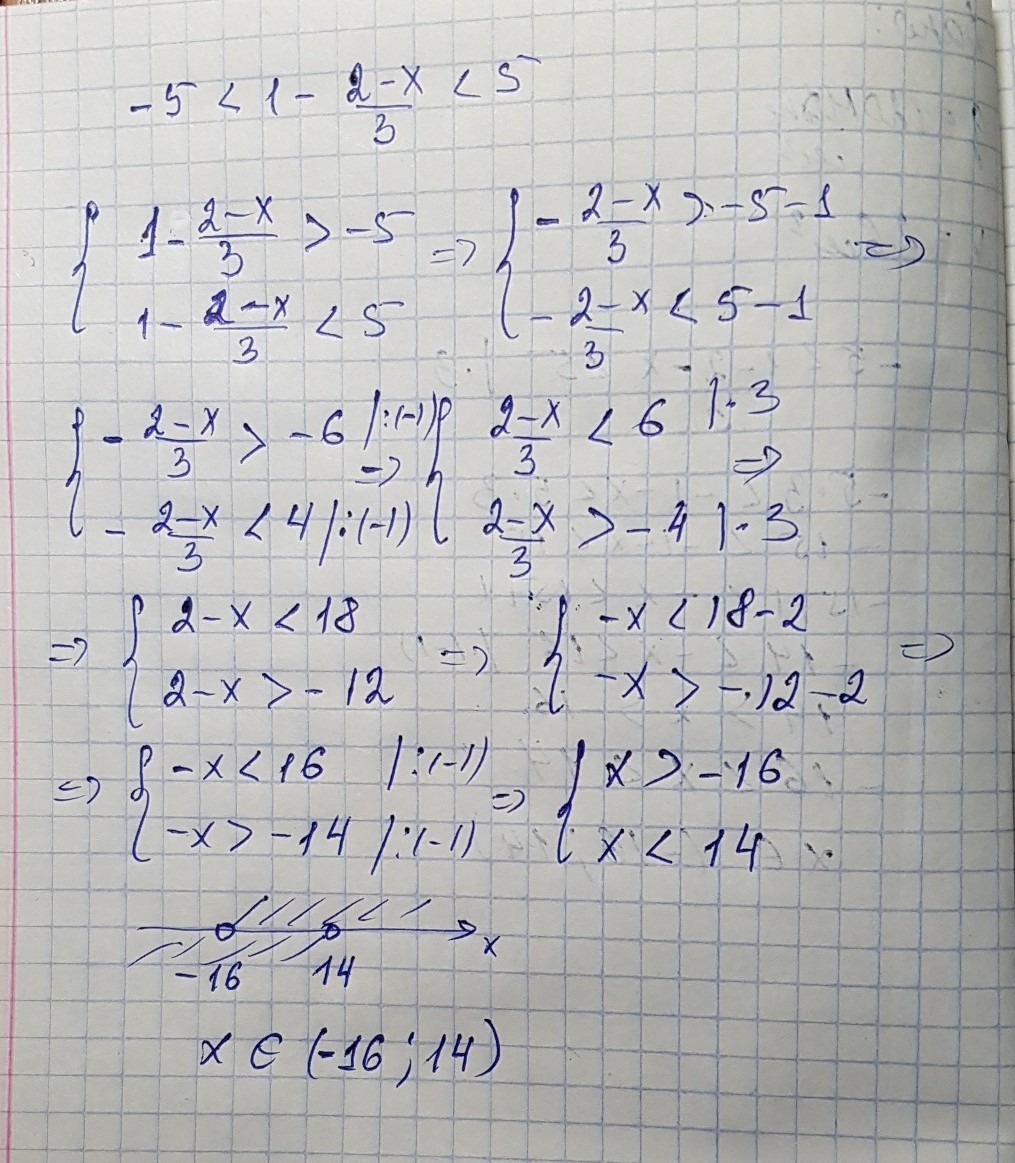 -5 < 1 - (2-x)/3 < 5
{ 1 - (2-x)/3 > -5 => { - (2-x)/3 > -5-1 =>
{ 1 - (2-x)/3 < 5 { - (2-x)/3 < 5-1
{ - (2-x)/3 > -6 |:(-1) => { (2-x)/3 < 6 |·3 =>
{ - (2-x)/3 < 4 |:(-1) { (2-x)/3 > -4 |·3
=> { 2-x < 18 => { -x < 18-2 =>
{ 2-x > -12 { -x > -12-2
=> { -x < 16 |:(-1) => { x > -16
{ -x > -14 |:(-1) { x < 14
-16 14 x
x ∈ (-16; 14)